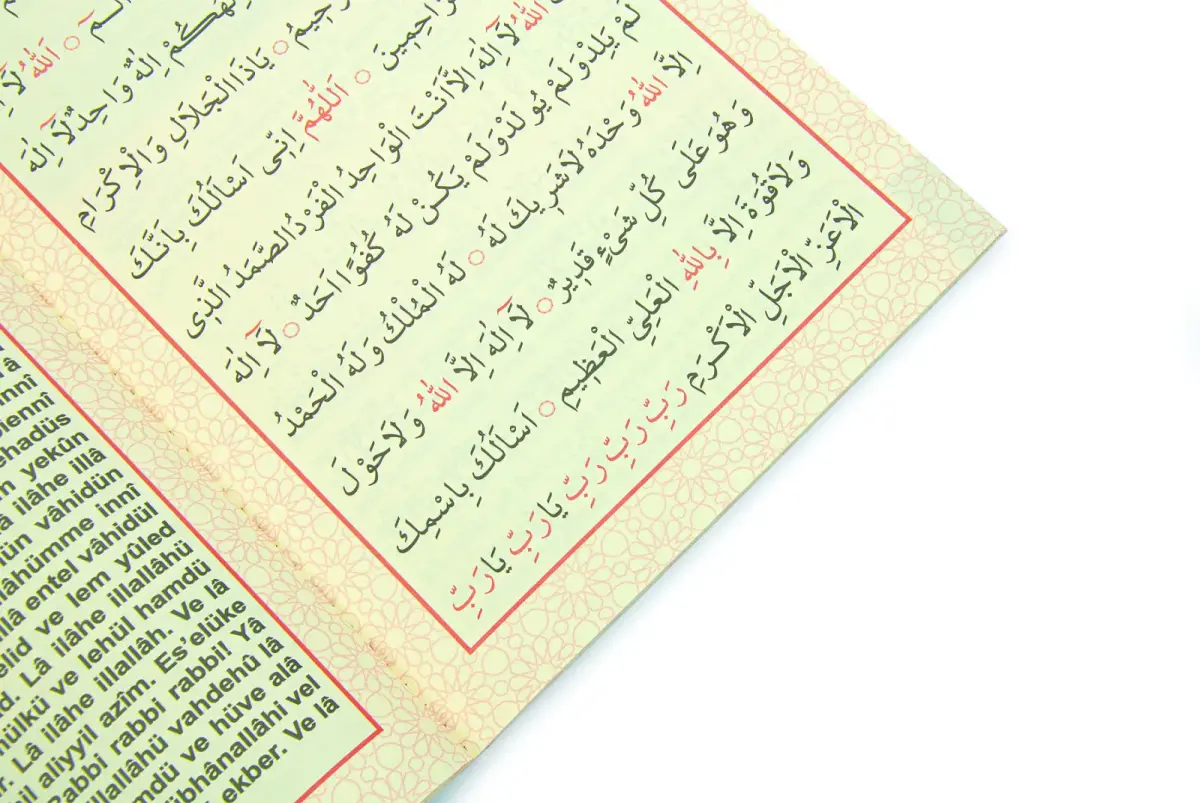 الٓمٓ ○ اَللّٰهُ لَٓا
اِلٰهٌ وَاحِدٌ لَٓا اِلٰهَ
يَاذَا الْجَلَالِ وَالْاِكْرَامِ
○ اَللّٰهُمَّ اِنِّى اَسْاَلُكَ بِاَنَّكَ
اللّٰهُ لَٓا اِلٰهَ اِلَّا اَنْتَ الْوَاحِدُ الْفَرْدُ الصَّمَدُ الَّذِى
لَمْ يَلِدْ وَلَمْ يُولَدْ وَلَمْ يَكُنْ لَهُ كُفُوًا اَحَدٌ ○ لَٓا اِلٰهَ
اِلَّا اللّٰهُ وَحْدَهُ لَا شَرِيكَ لَهُ ○ لَهُ الْمُلْكُ وَلَهُ الْحَمْدُ
وَهُوَ عَلَى كُلِّ شَىْءٍ قَدِيرٌ ○ لَٓا اِلٰهَ اِلَّا اللّٰهُ وَلَا حَوْلَ
وَلَا قُوَّةَ اِلَّا بِاللّٰهِ الْعَلِىِّ الْعَظِيمِ ○ اَسْاَلُكَ بِاسْمِكَ
الْاَعَزِّ الْاَجَلِّ الْاَكْرَمِ رَبِّ رَبِّ رَبِّ يَارَبِّ يَارَبِّ
yekûn
ilâhe illâ
vâhidün
innî
illâ entel vâhidül
ve lem yûled
Lâ ilâhe illallâhü
ve lehül hamdü
Lâ ilâhe illallâh. Ve lâ
aliyyil azîm. Es'elüke
Rabbi rabbi rabbi! Yâ
vahdehû lâ
ve hüve alâ
vel
ekber. Ve lâ